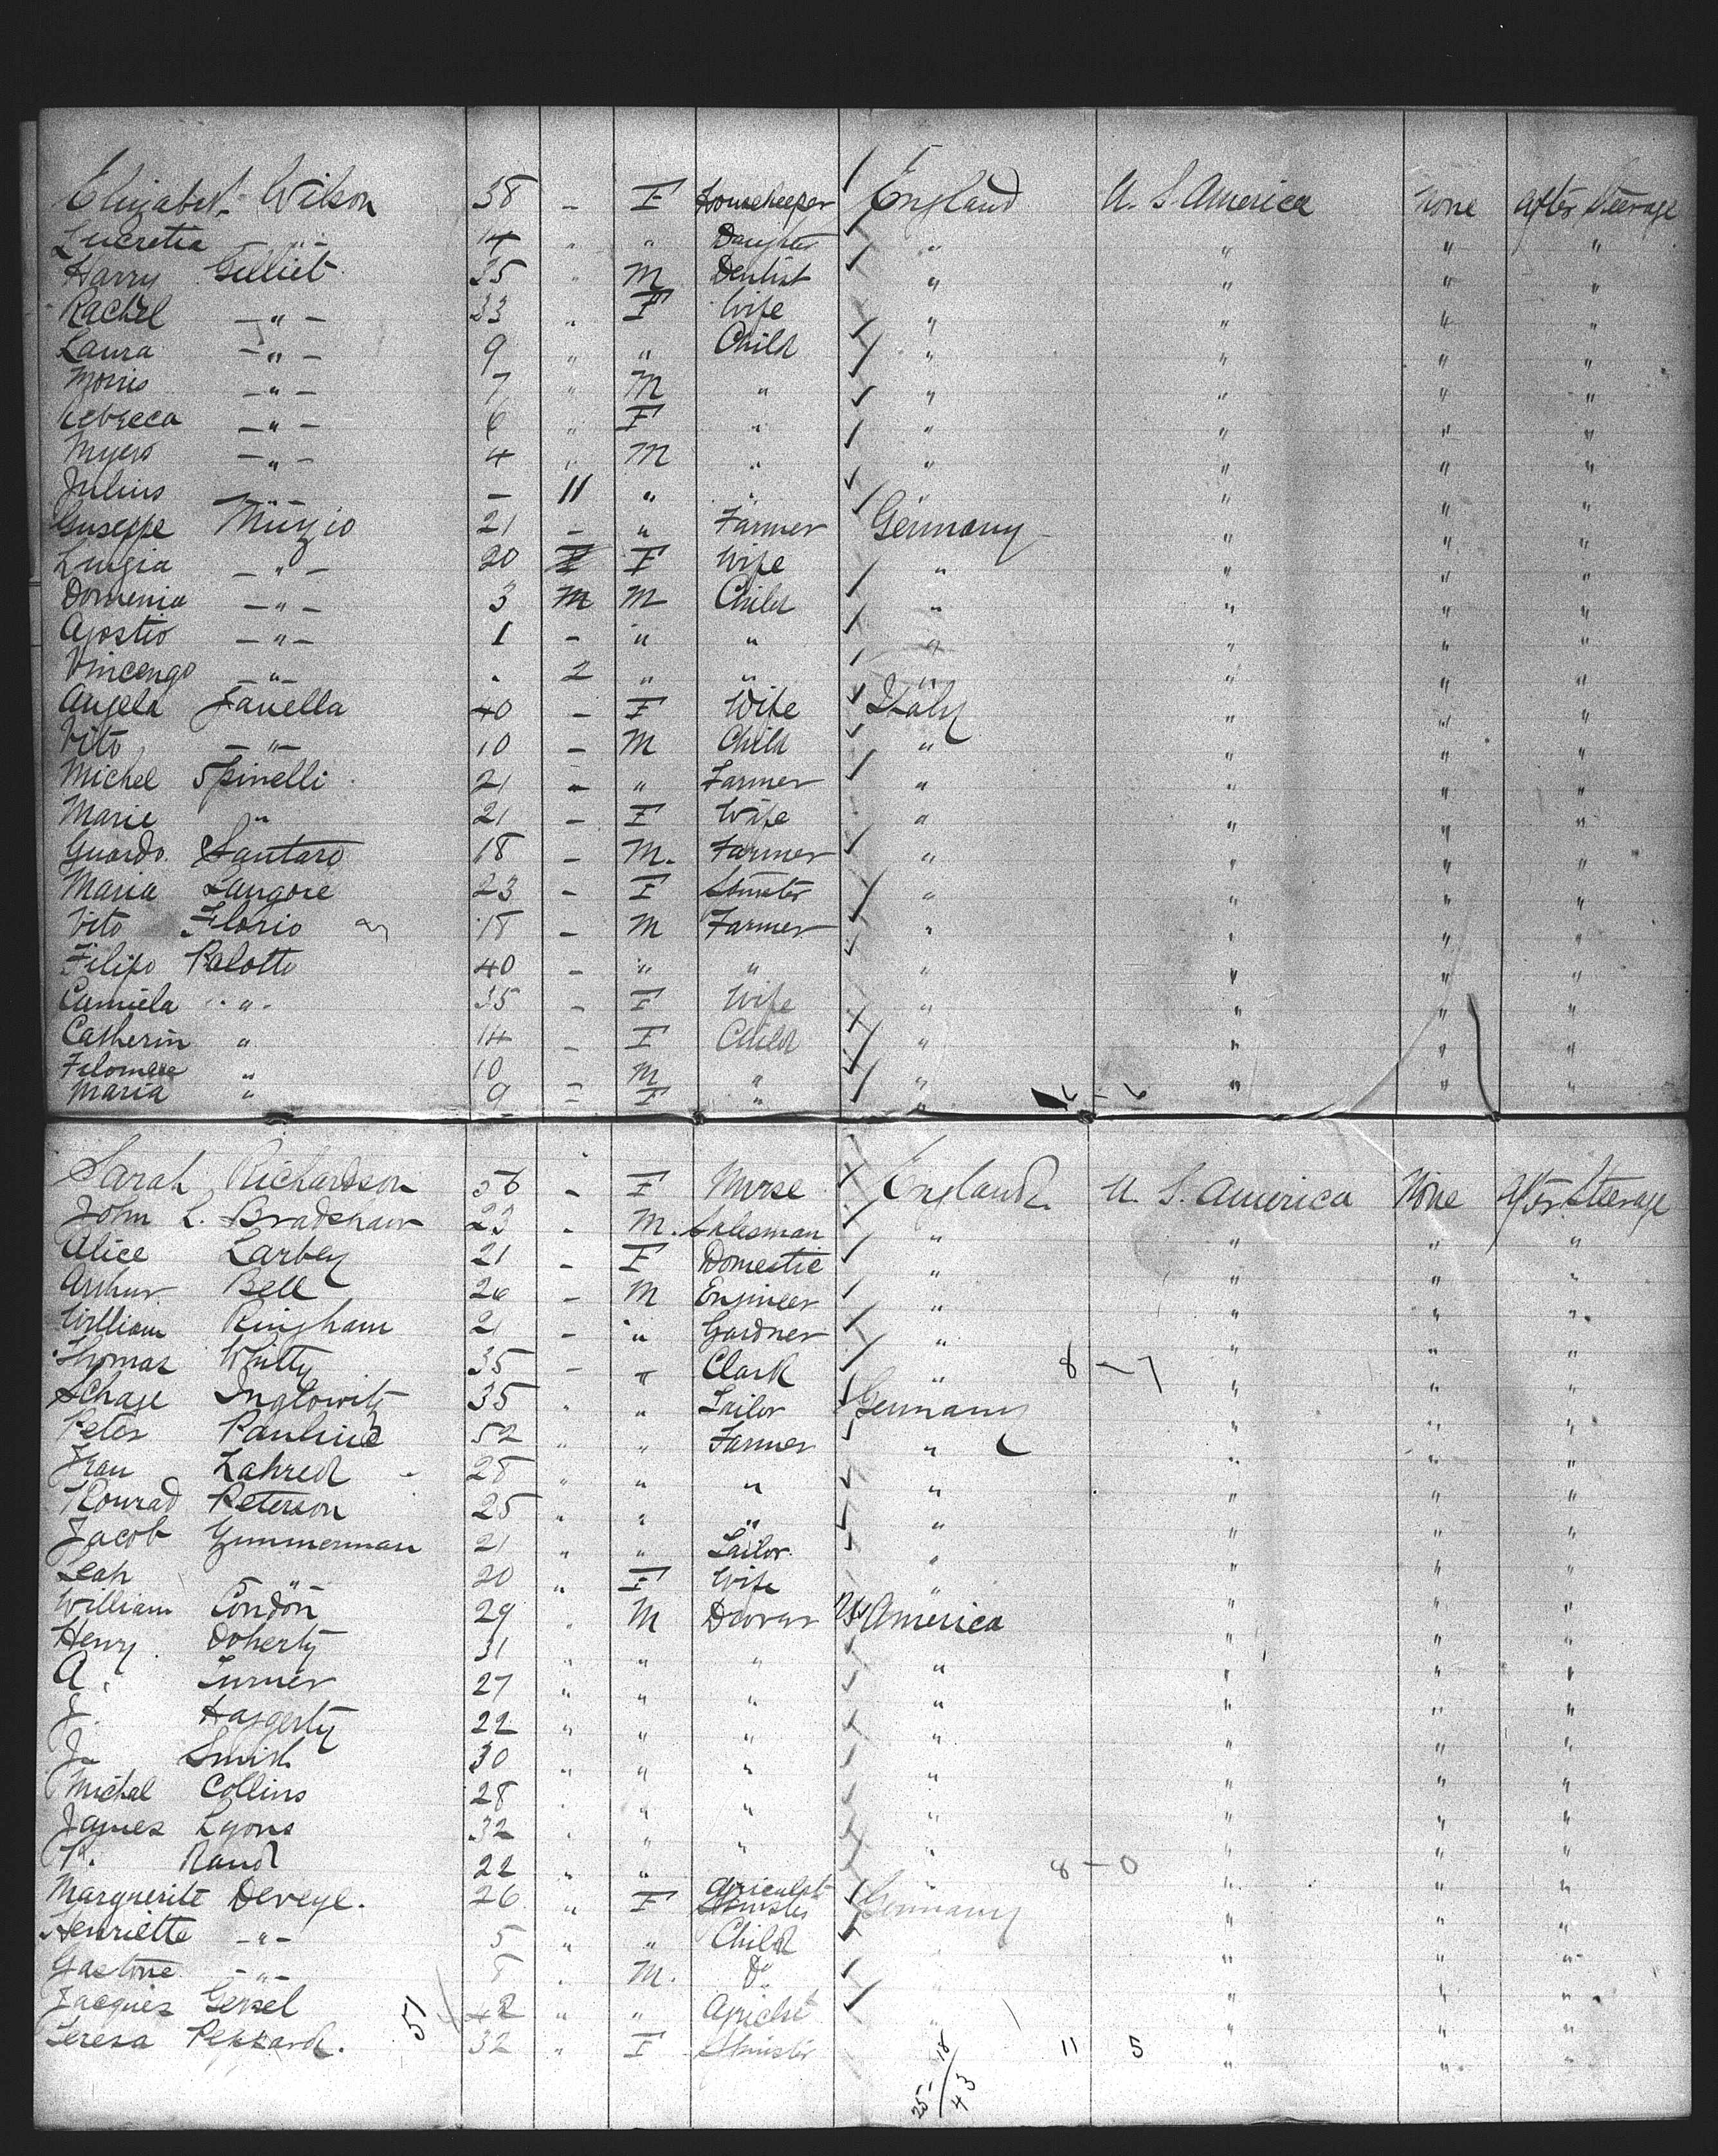 Elizabet. Wilson 38 - F Housekeeper England U. S. America None after Steerage
Lucretia - " - 14 " " Daughter " " " "
Harry Gilliet 35 " M Dentist " " " "
Rachel - " - 33 " F Wife " " " "
Laura - " - 9 " " Child " " " "
Morris - " - 7 " M " " " " "
Rebecca - " - 6 " F " " " " "
Myers - " - 4 " M " " " " "
Julius - " - - 11 " " " " " "
Guseppe Muzio 21 - " Farmer Germany " " "
Luigia - " - 20 F Wife " " " "
Domenia - " - 3 M M Child " " " "
Agostio - " - 1 - " " " " " "
Vincengo - " - . 2 " " " " " "
Angela Fanella 40 - F Wife Italy " " "
Vito - " - 10 - M Child " " " "
Michel Spinelli 21 - " Farmer " " " "
Marie " 21 - F Wife " " " "
Guardo Santaro 18 - M. Farmer " " " "
Maria Langore 23 - F " " " "
Vito Florio 18 - M Farmer " " " "
Filipo Palotto 40 - " " " " " "
Camiela " 35 - F Wife " " " "
Catherin " 14 - F Child " " " "
Filomene " 10 - M " " " " "
Maria " 9 - F " " " " "
6 - 6
Sarah Richardson 56 - F Nurse England U. S. America None after Steerage
John L. Bradshaw 23 - M. Salesman " " " "
Alice Larbey 21 - F Domestic " " " "
Arthur Bell 26 - M Engineer " " " "
William Ringham 21 - " Gardner " " " "
Thomas Whitty 35 - " Clark " 8 - 7 " " "
Schage Inglowitz 35 " " Tailor Germany " " "
Peter Pauline 52 " " Farmer " " " "
Fran Lahred 28 " " " " " " "
Konrad Peterson 25 " " " " " " "
Jacob Zummerman 21 " " Tailor " " " "
Leah - " - 20 " F Wife " " " "
William Condon 29 " M Drover US America " " "
Henry Doherty 31 " " " " " " "
A. Turner 27 " " " " " " "
J. Haggerty 22 " " " " " " "
J. Smith 30 " " " " " " "
Michal Collins 28 " " " " " " "
James Lyons 32 " " " " " " "
P. Rand 22 " " " 8 - 0 " " "
Marguerite Deveye. 26 " F Germany " " "
Henriette - " - 5 " " Child " " "
Gastone - " - 8 " M. Do " " "
Jacques Gensel 51 42 " " Agricult " " "
Teresa Pekkard. 32 " F 11 5 " " "
25 - 18
43